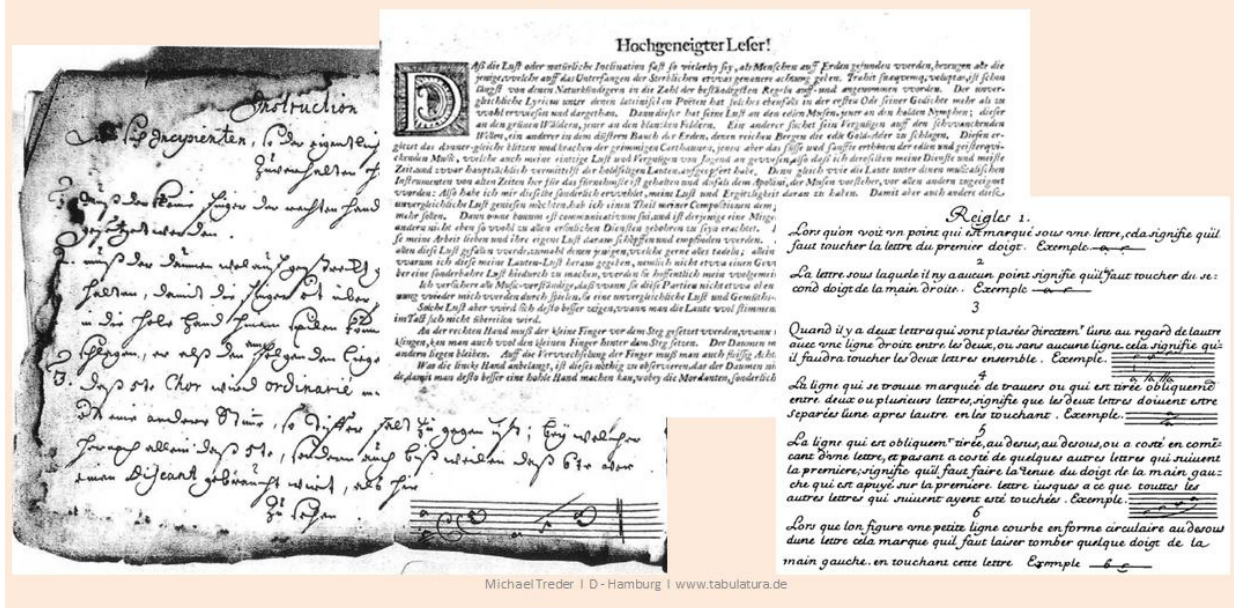 Instruction
Incipienten, so der eigentlich
Zu
1. Muß der kleine finger der rechten hand
werden.
2. muß der daumen wol
halten, damit der finger
in die hole hand
schlagen, er
3. Daß 5te Chor wird ordinarié
ein anderer gegen bey welcher
hernach allein daß 5te, sondern auch biß weilen daß 6te
einen Discant gebraucht wird, alß hier
Zu sehen.
Hochgeneigter Leser!
DAß die Lust oder natürliche Inclination fast so vielerley sey, als Menschen auff Erden gefunden werden, bezeugen alle die
jenige, welche auff das Unterfangen der Sterblichen etwas genauere achtung geben. Trahit suaquemq; voluptas, ist schon
längst von denen Naturkündigern in die Zahl der beständigsten Regeln auff- und angenommen worden. Der unver-
gleichliche Lyricus unter denen lateinischen Poëten hat solches ebenfals in der ersten Ode seiner Gedichte mehr als zu
wohl erwiesen und dargethan. Dann dieser hat seine Lust an den edlen Musen, jener an den holden Nymphen; dieser
an den grünen Wäldern, jener an den blancken Feldern. Ein anderer suchet sein Vergnügen auff den schwanckenden
Wellen, ein anderer in dem düstern Bauch der Erden, denen reichen Bergen die edle Gold-Ader zu schlagen. Diesen er-
götzet das donner-gleiche blitzen und krachen der grimmigen Carthaunen, jenen aber das süsse und sanffte erthönen der edlen und geisterqui-
ckenden Music, welche auch meine eintzige Lust und Vergnügen von Jugend an gewesen, also daß ich derselben meine Dienste und meiste
Zeit, und zwar hauptsächlich vermittelst der holdseligen Lauten, auffgeopfert habe. Dann gleich wie die Laute unter denen musicalischen
Instrumenten von alten Zeiten her für das fürnehmste ist gehalten und dafals dem Apollini, der Musen vorsteher, vor allen andern zugeeignet
worden: Also habe ich mir dieselbe sonderlich erwehlet, meine Lust und Ergötzligkeit daran zu haben. Damit aber auch andere diese
unvergleichliche Lust geniesen möchten, hab ich einen Theil meiner Compositionen dem
mehr sollen. Dann omne bonum est communicativum sui, und ist derjenige eine
andern nicht eben so wohl zu allen ersinlichen Diensten gebohren zu seyn erachtet.
so meine Arbeit lieben und ihre eigene Lust daraus schöpffen und empfinden werden.
allen diese Lust gefallen werde, zumahl denen jenigen, welche gerne alles tadeln; allein
warum ich diese meine Lauten-Lust heraus gegeben, nemlich nicht etwa einen
ber eine sonderbahre Lust hiedurch zu machen, werden sie hoffentlich mein
Ich versichere alle Music-verständige, daß wann sie diese Partien nicht etwa oben
wieder mich werden durch spielen, sie eine unvergleichliche Lust und Gemüths-
Solche Lust aber wird sich desto besser zeigen, wann man die Laute wol stimmen
im Tact sich nicht übereilen wird.
An der rechten Hand muß der kleine Finger vor dem Steg gesetzet werden, wann
klingen, ken man auch wol den kleinen Finger hinter dem Steg setzen. Der Daumen
andern liegen bleiben. Auff die Verwechselung der Finger muß man auch fleissig Acht
Was die lincke Hand anbelangt, ist dieses nöthig zu observieren, das der Daumen
de, damit man desto besser eine hohle Hand machen kan, wobey die Mordanten, sonderlich
Reigles 1.
Lors qu'on voit vn point qui est marqué sous vne lettre, cela signifie quil
faut toucher la lettre du premier doigt. Exemple a c
2
La lettre sous laquele il ny a aucun point signifie quil faut toucher du se:
cond doigt de la main droite. Exemple a c
3
Quand il y a deux lettres qui sont plasées directem.t l'une au regard de lautre
auec vne ligne droite entre les deux, ou sans aucune ligne, cela signifie qu'
il faudra toucher les deux lettres ensemble. Exemple.
4
La ligne qui se trouue marquée de trauers ou qui est tirée obliquem.t
entre deux ou plusieurs lettres, signifie que les deux lettres doiuent estre
separées l'une apres lautre en les touchant. Exemple.
5
La ligne qui est obliquem.t tirée, au desus, au desous, ou a costé en comē:
cant d'vne lettre, et pasant a costé de quelques autres lettres qui suiuent
la premiere; signifie quil faut faire la tenue du doigt de la main gau:
che qui est apuyé sur la premiere lettre iusques a ce que touttes les
autres lettres qui suiuent ayent esté touchées. Exemple.
6
Lors que lon figure vne petite ligne courbe en forme circulaire au desous
dune lettre cela marque quil faut laiser tomber quelque doigt de la
main gauche. en touchant cette lettre Exemple b c
Michael Treder I D - Hamburg I www.tabulatura.de